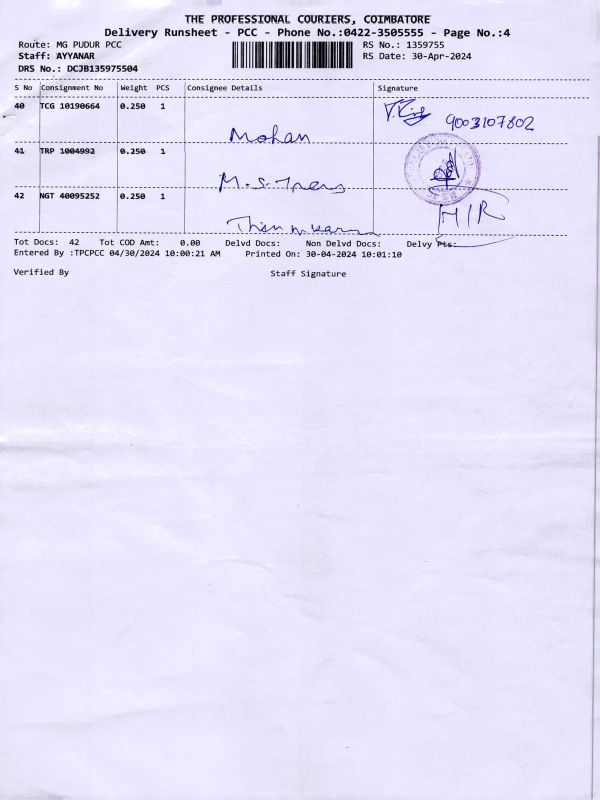 THE PROFESSIONAL COURIERS, COIMBATORE
Delivery Runsheet - PCC - Phone No.:0422-3505555 - Page No.:4
Route: MG PUDUR PCC RS No.: 1359755
Staff: AYYANAR RS Date: 30-Apr-2024
DRS No.: DCJB135975504
S No Consignment No Weight PCS Consignee Details Signature
40 TCG 10190664 0.250 1
Mohan 9003107802
41 TRP 1004992 0.250 1
M.S.
42 NGT 40095252 0.250 1
Tot Docs: 42 Tot COD Amt: 0.00 Delvd Docs: Non Delvd Docs: Delvy Pts:
Entered By :TPCPCC 04/30/2024 10:00:21 AM Printed On: 30-04-2024 10:01:10
Verified By Staff Signature